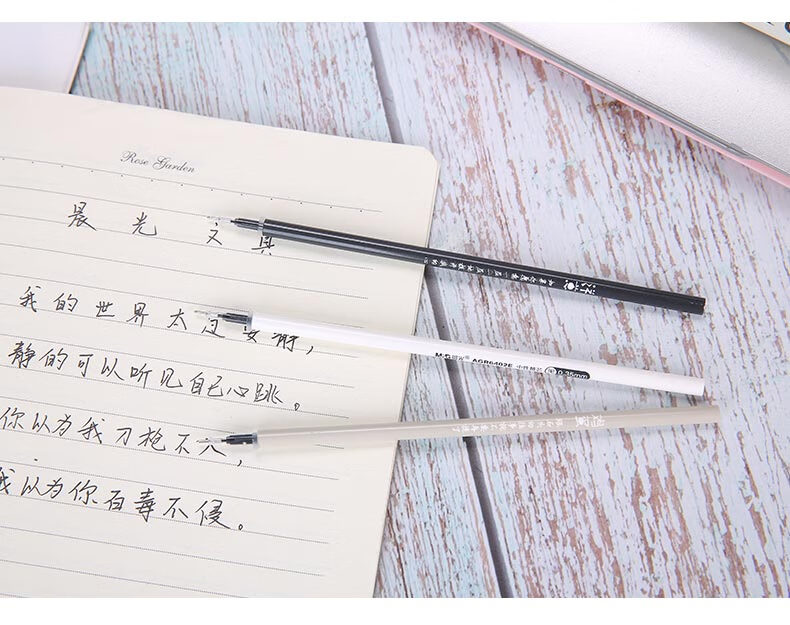 Rose Garden
晨光文具
我的世界太过安静，
静的可以听见自己心跳。
你以为我刀枪不入，
我以为你百毒不侵。
M&G 晨光 AGR6402E 0.35mm